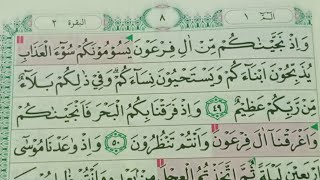 البقرة ٢ ٨ الٓمّٓ ١
وَاِذْ نَجَّيْنٰكُمْ مِّنْ اٰلِ فِرْعَوْنَ يَسُوْمُوْنَكُمْ سُوْٓءَ الْعَذَابِ
يُذَبِّحُوْنَ اَبْنَآءَكُمْ وَيَسْتَحْيُوْنَ نِسَآءَكُمْ وَفِيْ ذٰلِكُمْ بَلَآءٌ
مِّنْ رَّبِّكُمْ عَظِيْمٌ ٤٩ وَاِذْ فَرَقْنَا بِكُمُ الْبَحْرَ فَاَنْجَيْنٰكُمْ
وَاَغْرَقْنَآ اٰلَ فِرْعَوْنَ وَاَنْتُمْ تَنْظُرُوْنَ ٥٠ وَاِذْ وٰعَدْنَا مُوْسٰٓى
اَرْبَعِيْنَ لَيْلَةً ثُمَّ اتَّخَذْتُمُ الْعِجْلَ